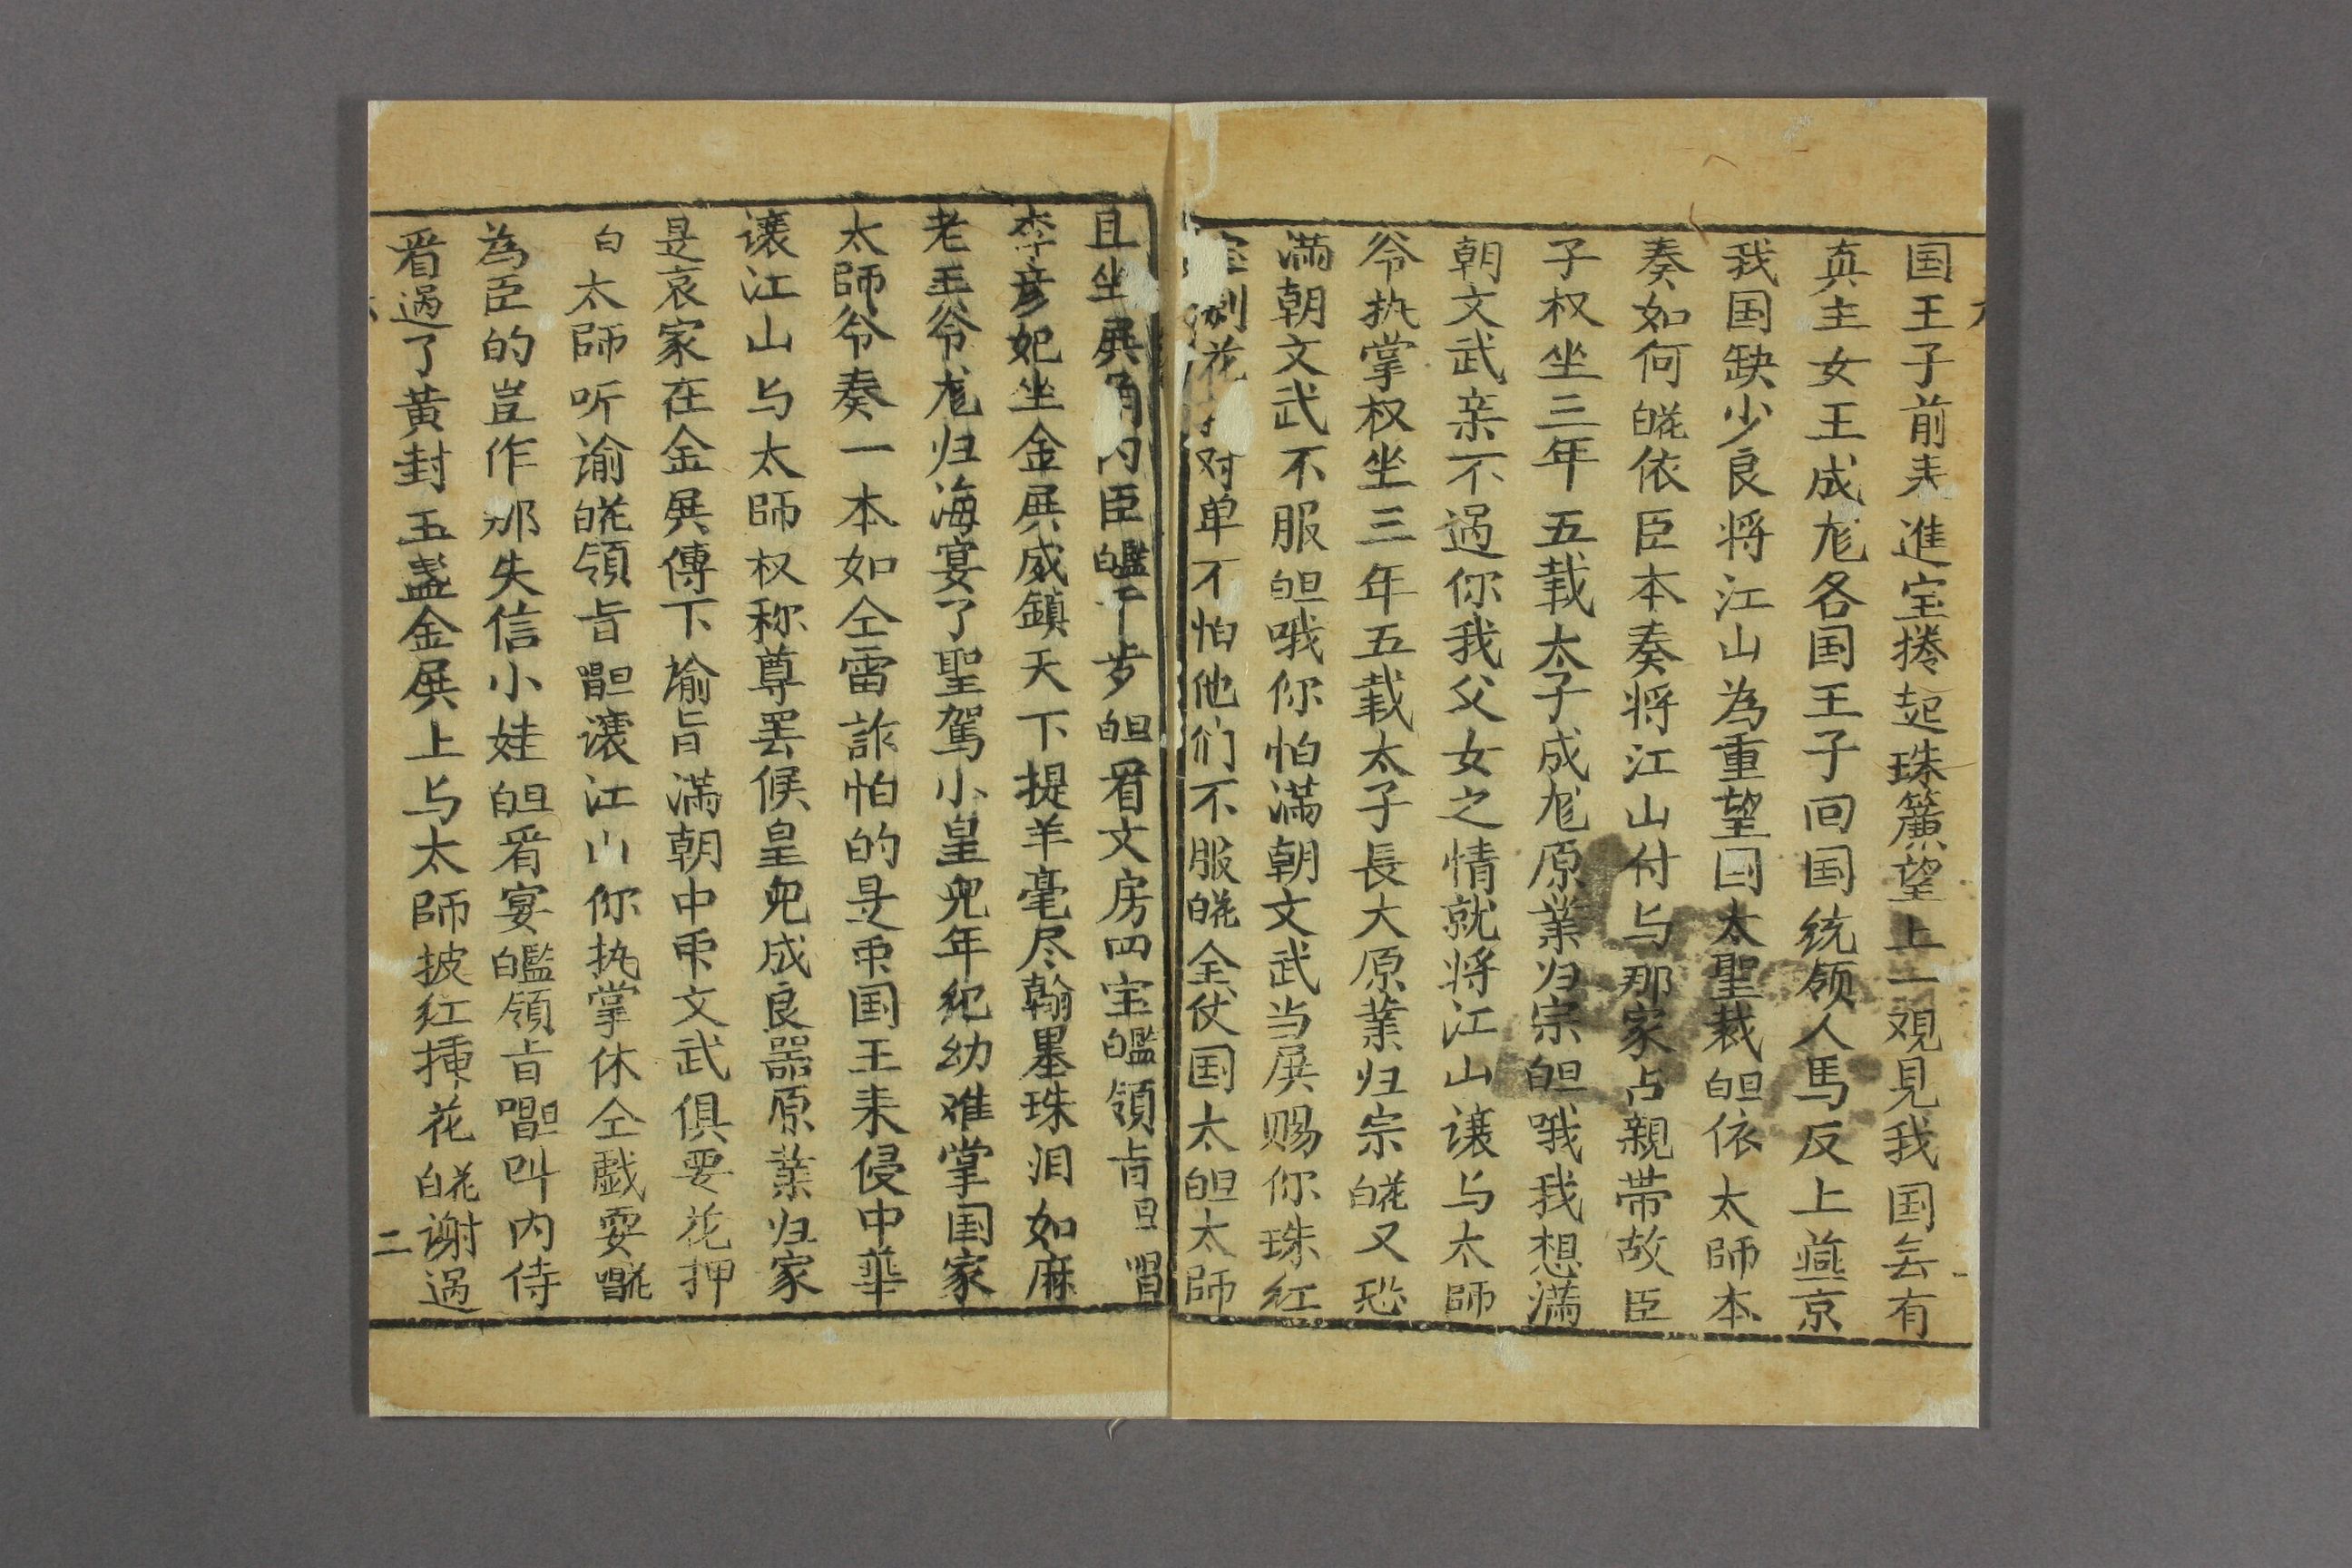 国王子前耒進宝捲起珠簾望上一观見我国去有
真主女王成尨各国王子回国统领人馬反上燕京
我国缺少良将江山為重望国太聖裁白旦依太師本
奏如何白花依臣本奏将江山付与那家占親带故臣
子权坐三年五载太子成尨原業归宗白旦哦我想满
朝文武亲不過你我父女之情就将江山讓与太師
爷执掌权坐三年五载太子長大原業归宗白花又恐
满朝文武不服白旦哦你怕满朝文武当展赐你珠红
宝剑花对单不怕他们不服白花全仗国太白旦太師
且坐展角内臣白監下步白旦看文房四宝白監領旨旦唱
李彦妃坐金展威鎮天下提羊毫尽翰墨珠泪如麻
老王爷尨归海宴了聖駕小皇兒年纪幼难掌国家
太師爷奏一本如仝雷詐怕的是乕国王耒侵中華
讓江山与太師权称尊罢候皇兒成良器原業归家
是哀家在金展傳下揄旨满朝中乕文武俱要花押
白太師听谕白花領旨唱旦讓江山你执掌休仝戯耍唱花
為臣的豈作那失信小娃白旦看宴白監領旨唱旦叫内侍
看過了黄封五盏金展上与太師披红揷花白花谢過
二